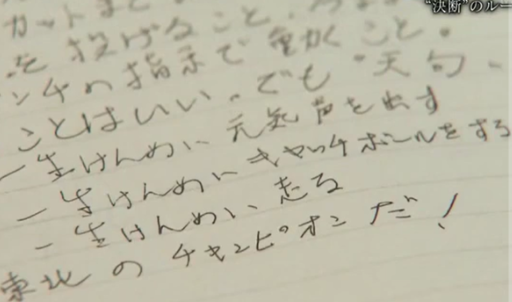 "決断"のルー
カットまで
を投げること、
ンチの指示で動くこと。
ことはいい。でも"文句、
一生けんめい 元気 声を出す
一生けんめい キャッチボールをする
一生けんめい 走る
東北のチャンピオンだ！